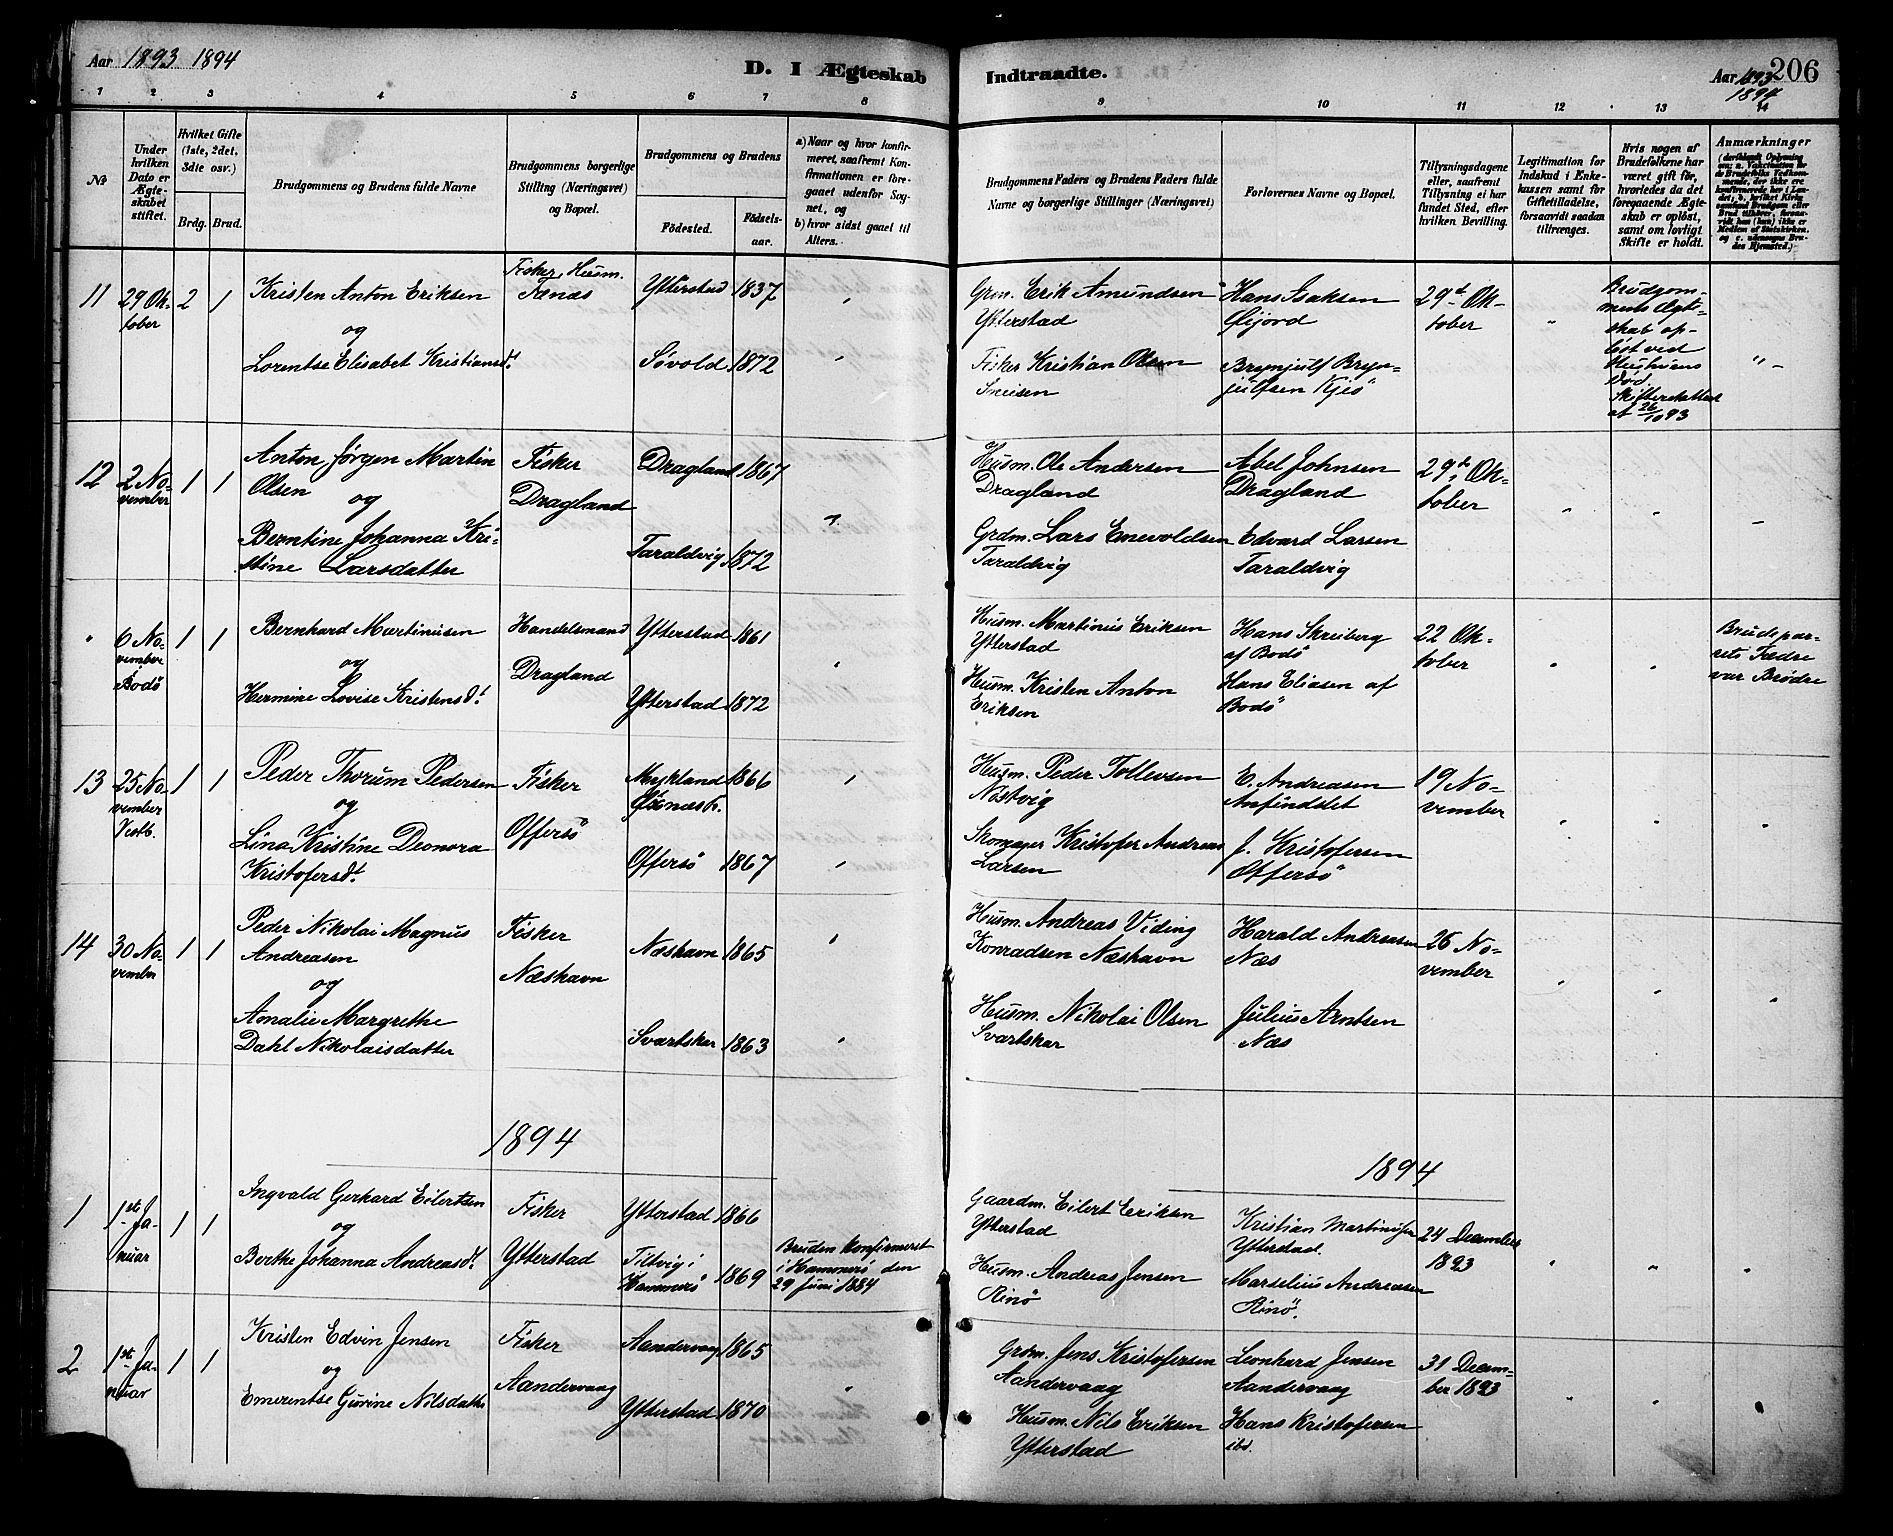 Aar 1893 1894
D. I Ægteskab Indtraadte.
Aar 1893 206
1894
1 2 3 4 5 6 7 8 9 10 11 12 13 14
No
Under hvilken Dato er Ægteskabet stiftet.
Hvilket Gifte (1ste, 2det, 3die osv.)
Brdg. Brud.
Brudgommens og Brudens fulde Navne
Brudgommens borgerlige Stilling (Næringsvei) og Bopæl.
Brudgommens og Brudens
Fødested. Fødselsaar.
a) Naar og hvor konfirmeret, saafremt Konfirmationen er foregaaet udenfor Sognet, og
b) hvor sidst gaaet til Alters.
Brudgommens Faders og Brudens Faders fulde Navne og borgerlige Stillinger (Næringsvei)
Forlovernes Navne og Bopæl.
Tillysningsdagene eller, saafremt Tillysning ei har fundet Sted, efter hvilken Bevilling.
Legitimation for Indskud i Enkekassen samt for Giftetilladelse, forsaavidt saadan tiltrænges.
Hvis nogen af Brudefolkene har været gift før, hvorledes da det foregaaende Ægteskab er opløst, samt om lovligt Skifte er holdt.
Anmærkninger
11 29 Oktober 2 1
Kristen Anton Eriksen
og
Lorentse Elisabet Kristiansdt.
Fisker, Husm.
Fænæs
Ytterstad 1837
Sövold 1872
Grm. Erik Amundsen
Ytterstad
Fisker Kristian Olsen
Hans Isaksen
Brynjulf Brynjulfsen Kjeö
29d Oktober
Brudgommens Ægteskab opløst ved Hustruens Død.
Skifteretsattest af 26/10 93
12 2 November 1 1
Anton Jørgen Martin
Olsen
og
Berntine Johanna Kristine Larsdatter
Fisker
Dragland
Dragland 1867
Taraldvig 1872
Husm. Ole Andersen
Dragland
Grdm. Lars Enevoldsen
Taraldvig
Abel Johnsen
Dragland
Edvard Larsen
Taraldvig
29d Oktober
" 6 November Bodø 1 1
Bernhard Martinusen
og
Hermine Lovise Kristensdt.
Handelsmand
Dragland
Ytterstad 1861
Ytterstad 1872
Husm. Martinus Eriksen
Ytterstad
Husm. Kristen Anton
Eriksen
Hans Skreiberg
af Bodö
Hans Eliasen af
Bodö
22 Oktober
Brudeparrets Fædre var Brødre
13 25 November Vestb. 1 1
Peder Thorum Pedersen
og
Lina Kristine Deonora
Kristofersdt.
Fisker
Offersö
Mykland 1866
Offersö 1867
Husm. Peder Tollevsen
Nöstvig
Skomager Kristofer Andreas
Larsen
E. Andreasen
Anfindslet
J. Kristofersen
Offersö
19 November
14 30 November 1 1
Peder Nikolai Magnus
Andreasen
og
Amalie Margrethe
Dahl Nikolaisdatter
Fisker
Næshavn
Næshavn 1865
Svartskar 1863
Husm. Andreas Viding
Konradsen Næshavn
Husm. Nikolai Olsen
Svartskar
Harald Andreasen
Næs
Julius Arntsen
Næs
26 November
1894 1894
1 1ste Januar 1 1
Ingvald Gerhard Eilertsen
og
Berthe Johanna Andreasdt.
Fisker
Ytterstad
Ytterstad 1866
Tiltvig i
Hammerö 1869
Bruden konfirmeret
i Hammerö den
29 Juni 1884
Gaardm. Eilert Eriksen
Ytterstad
Husm. Andreas Jensen
Rinö
Kristian Martinusen
Ytterstad.
Marselius Andreasen
Rinö.
24 December
1893
2 1ste Januar 1 1
Kristen Edvin Jensen
og
Emerentse Gurine Nilsdatter
Fisker
Aandervaag
Aandervaag 1865
Ytterstad 1870
Grdm. Jens Kristofersen
Aandervaag
Husm. Nils Eriksen
Ytterstad
Leonhard Jensen
Aandervaag
Hans Kristofersen
ibd.
31 December 1893